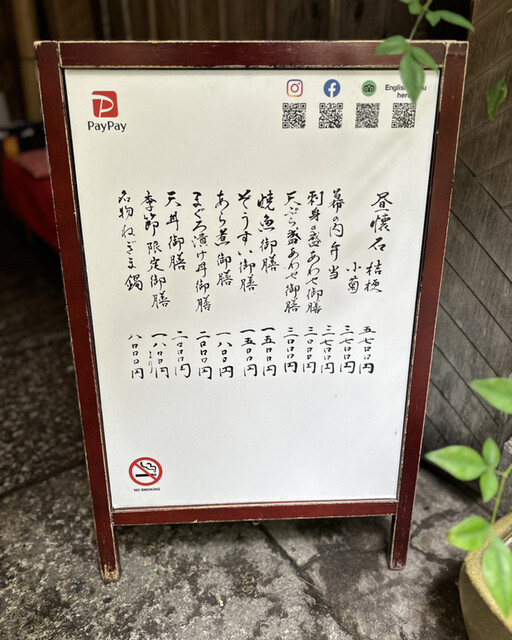 PayPay
English menu
here
昼懐石 桔梗 五七〇〇円
小菊 三七〇〇円
幕の内弁当 二七〇〇円
刺身盛あわせ御膳 三〇〇〇円
天ぷら盛あわせ御膳 二〇〇〇円
焼魚御膳 一五〇〇円
ぞうすい御膳 一五〇〇円
あら煮御膳 一八〇〇円
まぐろ漬け丼御膳 二〇〇〇円
天丼御膳 二〇〇〇円
季節限定御膳 一八〇〇円より
名物ねぎま鍋 八〇〇〇円
NO SMOKING